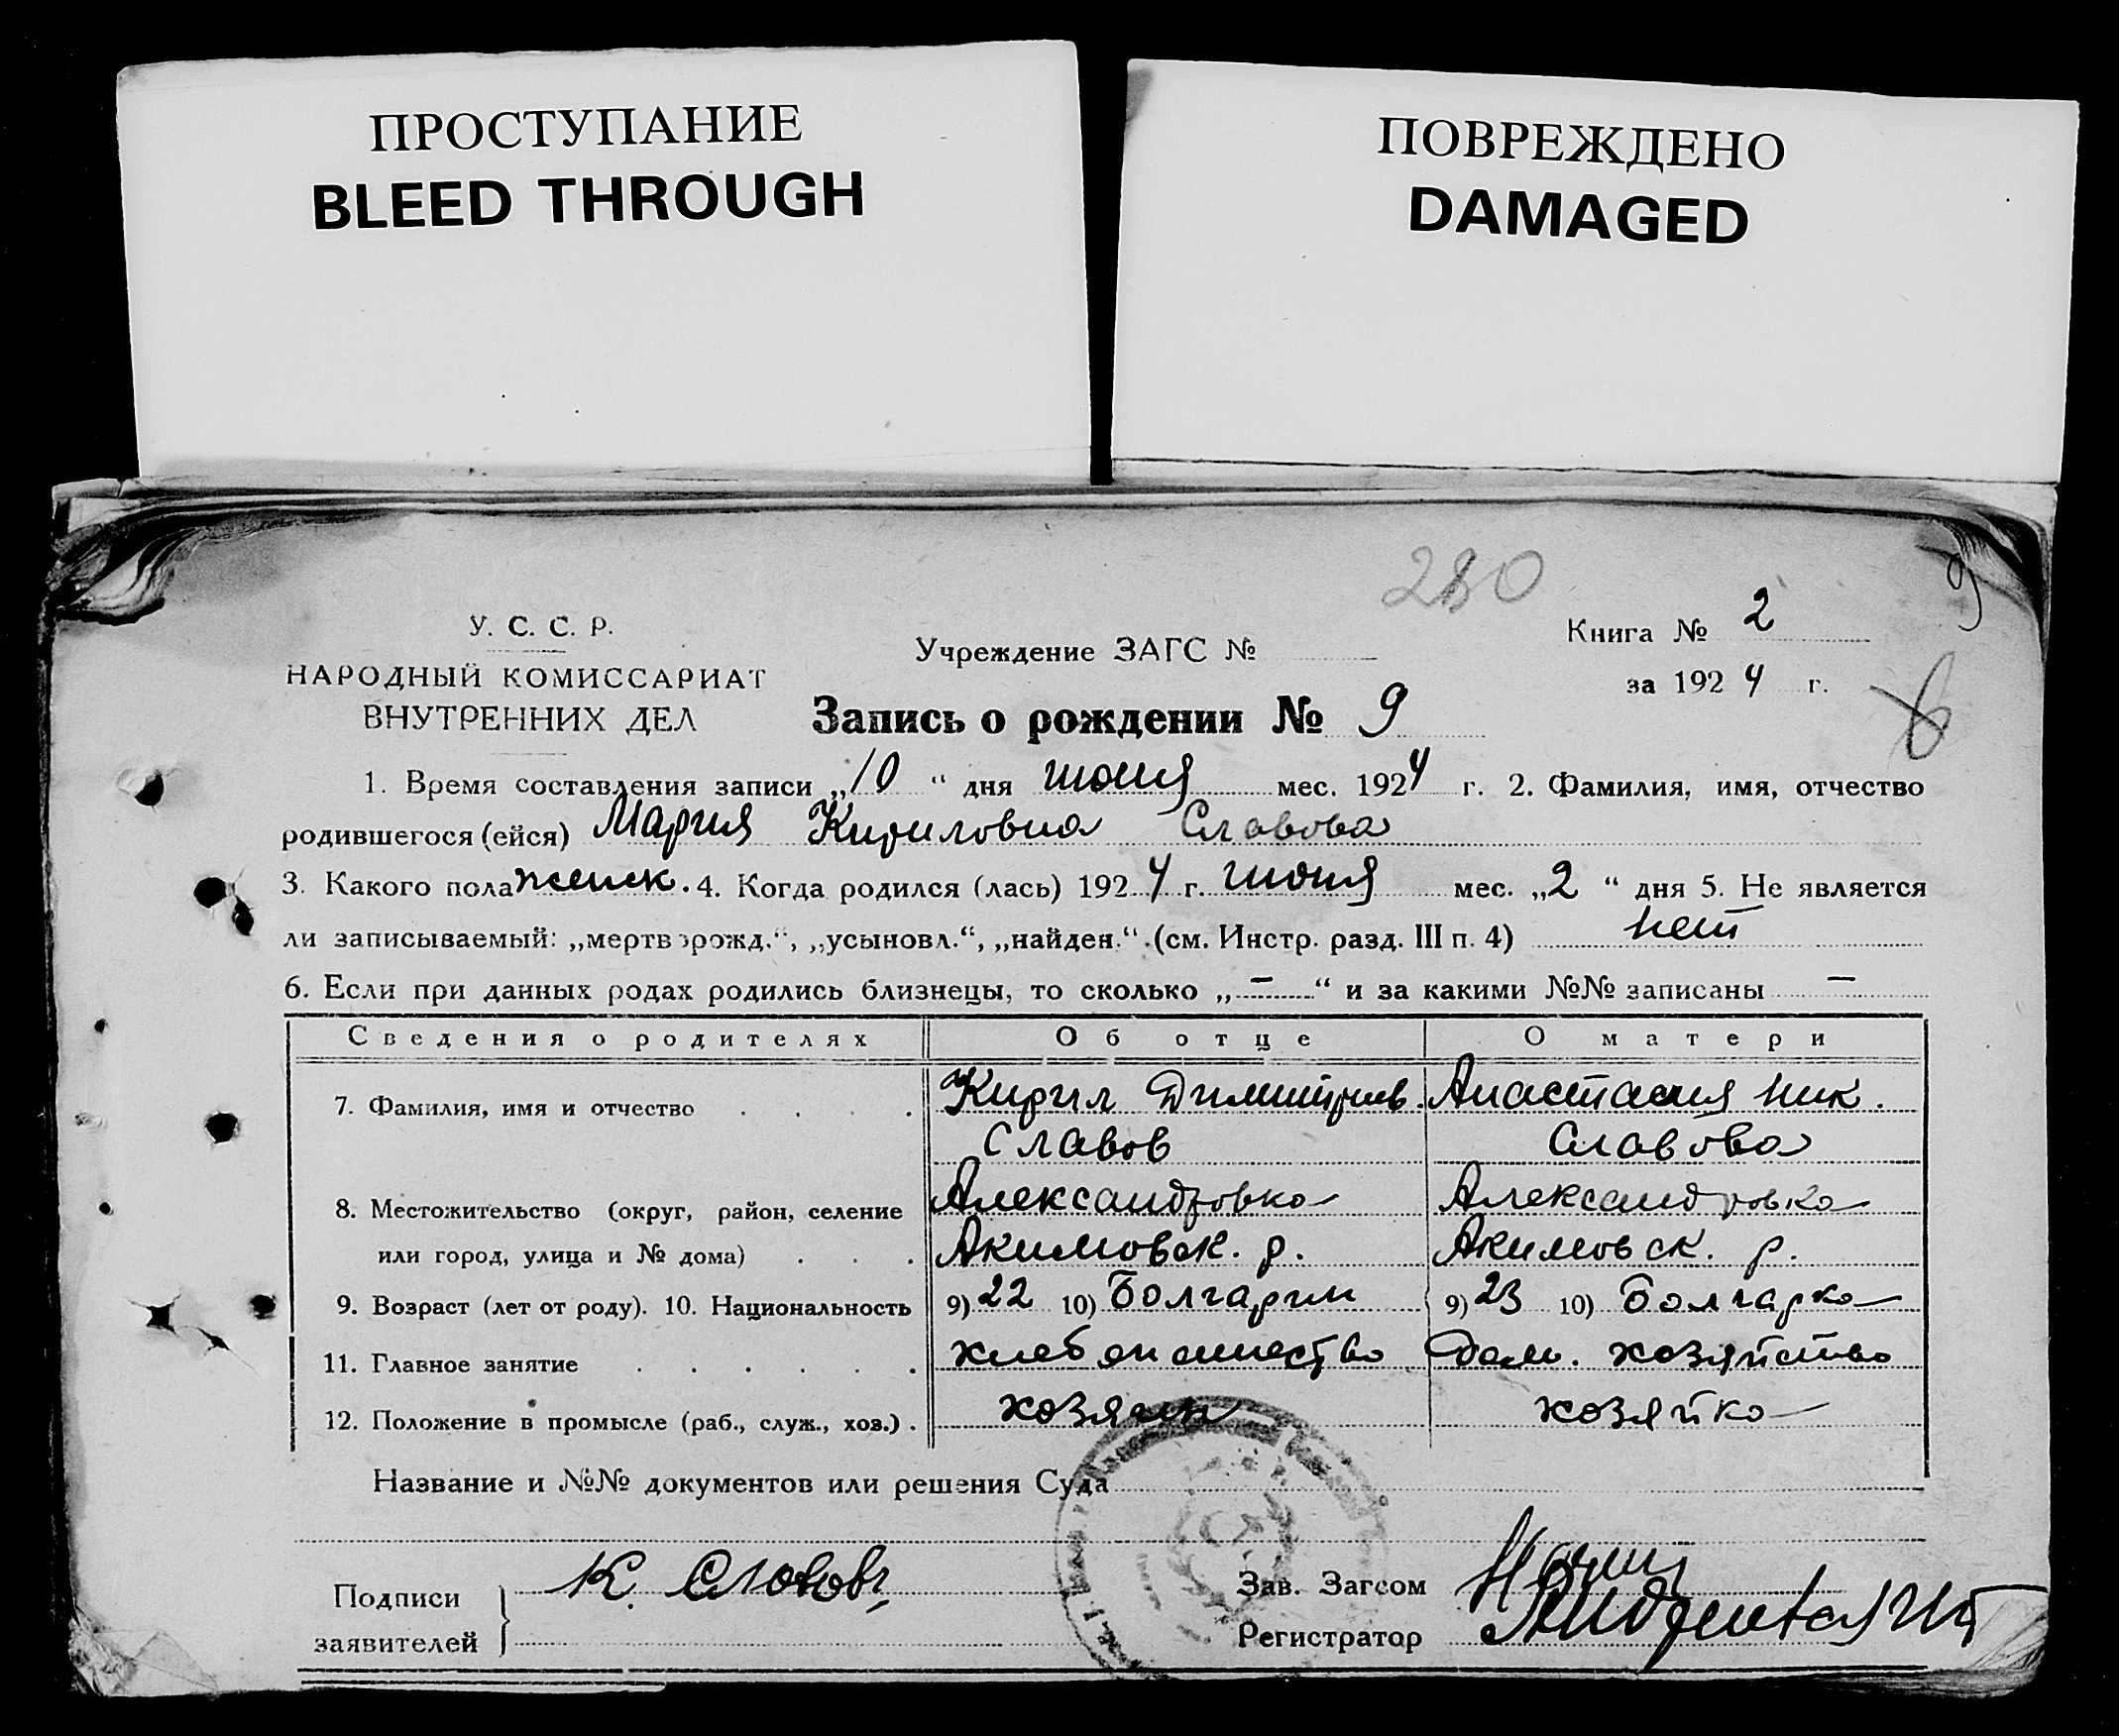 ПРОСТУПАНИЕ
BLEED THROUGH
ПОВРЕЖДЕНО
DAMAGED
280
9
У. С. С. Р.
НАРОДНЫЙ КОМИССАРИАТ
ВНУТРЕННИХ ДЕЛ
Учреждение ЗАГС №
Книга № 2
за 1924 г.
6
Запись о рождении № 9
1. Время составления записи „10“ дня июня мес. 1924 г. 2. Фамилия, имя, отчество
родившегося (ейся) Мария Кириловна Славова
3. Какого пола женск. 4. Когда родился (лась) 1924 г. июня мес. „2“ дня 5. Не является
ли записываемый: „мертворожд.“, „усыновл.“, „найден.“ (см. Инстр. разд. III п. 4) нет
6. Если при данных родах родились близнецы, то сколько „—“ и за какими №№ записаны —
Сведения о родителях Об отце О матери
7. Фамилия, имя и отчество Кирил Димитриев. Анастасия Ник.
Славов Славова
8. Местожительство (округ, район, селение Александровка Александровка
или город, улица и № дома) Акимовск. р. Акимовск. р.
9. Возраст (лет от роду). 10. Национальность 9) 22 10) Болгарин 9) 23 10) Болгарка
11. Главное занятие хлебопашество Дом. хозяйство
12. Положение в промысле (раб., служ., хоз.) хозяин хозяйка
Название и №№ документов или решения Суда
Подписи
заявителей
К. Славовъ
Зав. Загсом
Регистратор